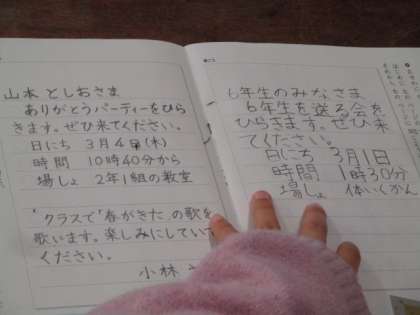 山本 としおさま
ありがとうパーティーをひら
きます。ぜひ来てください。
日にち 3月4日(木)
時間 10時40分から
場しょ 2年1組の教室
クラスで"春がきた"の歌を
歌います。楽しみにしていて
ください。
小林
6年生のみなさま
6年生を送る会を
ひらきます。ぜひ来
てください。
日にち 3月1日
時間 1時30分
場しょ 体いくかん